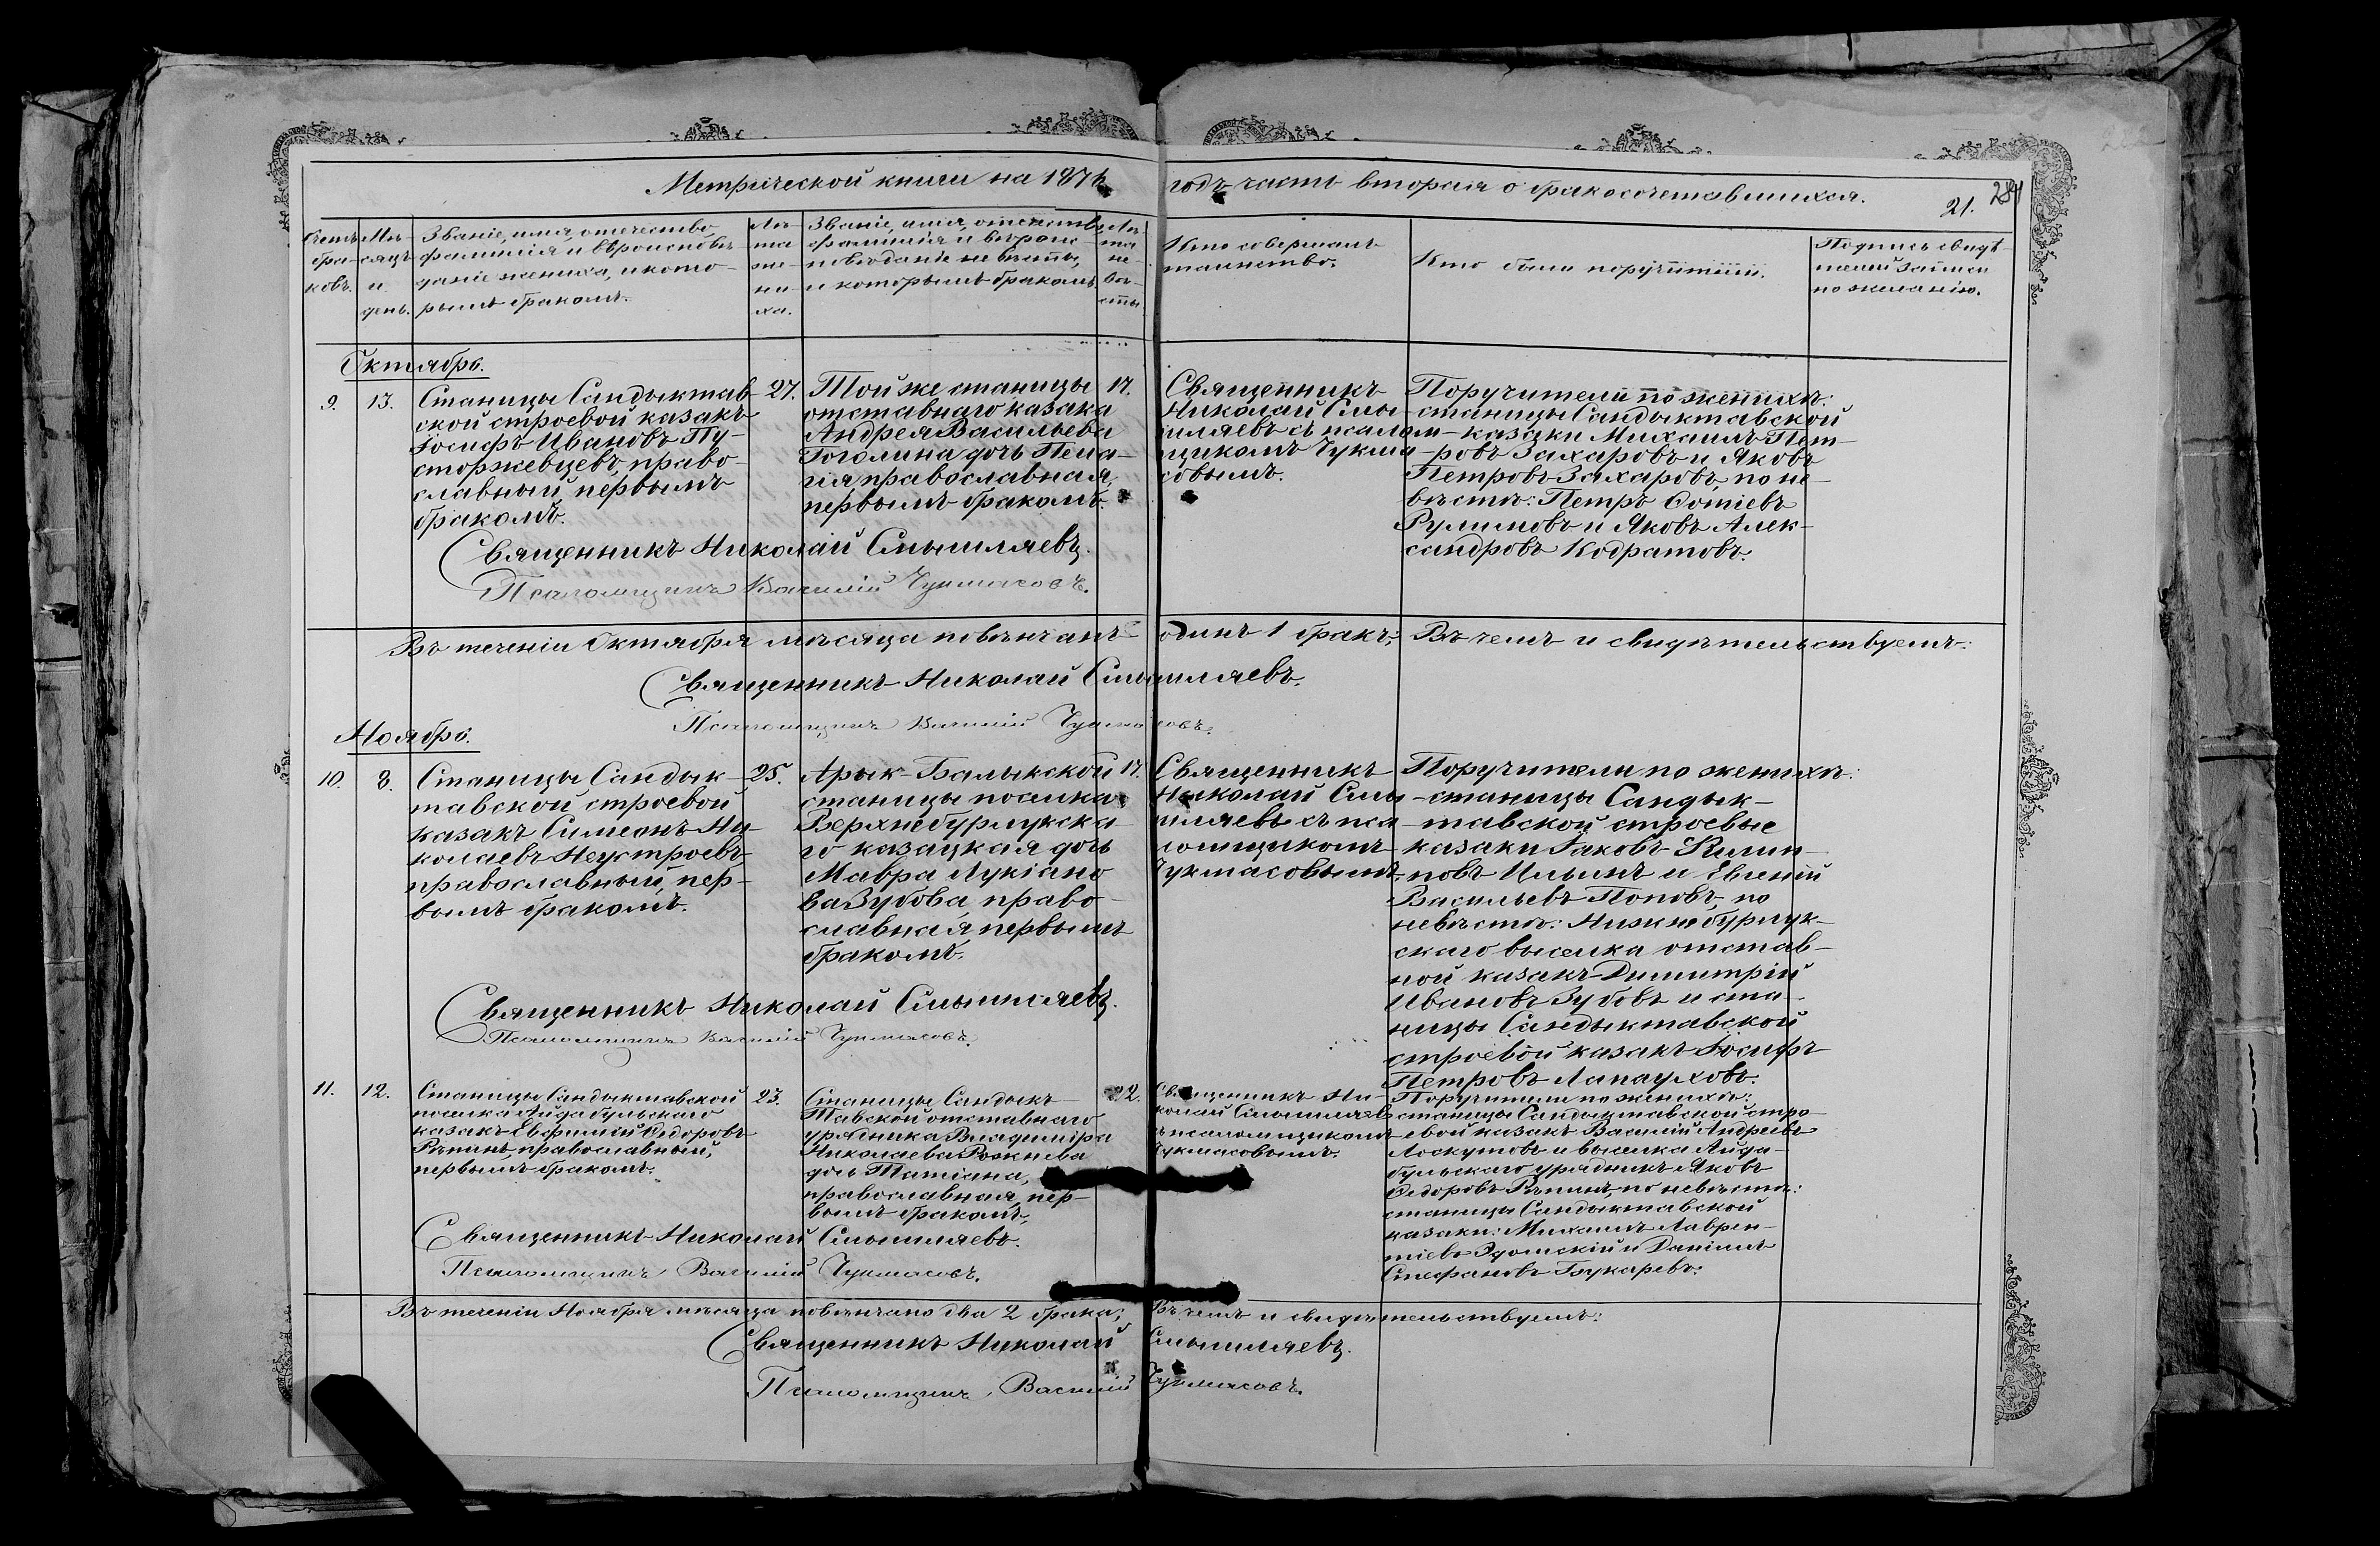 Метрической книги на 187 годъ часть вторая о бракосочетавшихся.
21.
Счетъ бра-ковъ.
Мѣ-сяцъ и день.
Званіе, имя, отечество,
фамилія и вѣроисповѣ-
даніе жениха, и кото-
рымъ бракомъ.
Лѣ-
та
же-
ни-
ха.
Званіе, имя, отечество,
фамилія и вѣроис-
повѣданіе невѣсты,
и которымъ бракомъ.
Лѣ-
та
не-
вѣ-
сты.
Кто совершалъ
таинство.
Кто были поручители.
Подпись свидѣ-
телей записи
по желанію.
Октябрь.
9. 13.
Станицы Сандыктав-
ской строевой казакъ
Іосифъ Ивановъ Пу-
сторжевцевъ, право-
славный, первымъ
бракомъ.
27.
Той же станицы
отставнаго казака
Андрея Васильева
Гоголина дочь Пела-
гія православная,
первымъ бракомъ.
17.
Священникъ
Николай Смы-
шляевъ съ псалом-
щикомъ Чукма-
совымъ.
Поручители по женихѣ:
станицы Сандыктавской
казаки Михаилъ Пет-
ровъ Захаровъ и Яковъ
Петровъ Захаровъ, по не-
вѣстѣ: Петръ
и Яковъ Алек-
сандровъ Кодратовъ.
Священникъ Николай Смышляевъ.
Псаломщикъ Василій Чукмасовъ.
Въ теченіи Октября мѣсяца повѣнчанъ одинъ 1 бракъ; Въ чемъ и свидѣтельствуемъ:
Священникъ Николай Смышляевъ.
Псаломщикъ Василій Чукмасовъ.
Ноябрь.
10. 8.
Станицы Сандык-
тавской строевой
казакъ Симеонъ Ни-
колаевъ Неустроевъ
православный, пер-
вымъ бракомъ.
25.
Арык-Балыкской
станицы поселка
Верхнебурлукска-
го казацкая дочь
Мавра Лукіано-
ва Зубова, право-
славная, первымъ
бракомъ.
17.
Священникъ
Николай Смы-
шляевъ съ пса-
ломщикомъ
Чукмасовымъ.
Поручители по женихѣ:
станицы Сандык-
тавской строевые
казаки Іаковъ Филип-
повъ Ильинъ и Евгеній
Васильевъ Поповъ, по
невѣстѣ: Нижнебурлук-
скаго выселка отстав-
ной казакъ Димитрій
Ивановъ Зубовъ и ста-
ницы Сандыктавской
строевой казакъ Іосифъ
Петровъ Лапауховъ.
Священникъ Николай Смышляевъ.
Псаломщикъ Василій Чукмасовъ.
11. 12.
Станицы Сандыктавской
поселка Айдабульскаго
казакъ Евфимій Ѳедоровъ
Рѣпинъ, православный,
первымъ бракомъ.
23.
Станицы Сандык-
тавской отставнаго
урядника Владиміра
Николаева Рожнева
дочь Татіана,
православная, пер-
вымъ бракомъ.
22.
Священникъ Ни-
колай Смышляевъ
съ псаломщикомъ
Чукмасовымъ.
Поручители по женихѣ:
станицы Сандыктавской стро-
евой казакъ Василій Андреевъ
Лоскутовъ и выселка Айда-
бульскаго урядникъ Яковъ
Ѳедоровъ Рѣпинъ, по невѣстѣ:
станицы Сандыктавской
казаки: Михаилъ Лаврен-
тіевъ и Даніилъ
Стефановъ Бухаревъ.
Священникъ Николай Смышляевъ.
Псаломщикъ Василій Чукмасовъ.
Въ теченіи Ноября мѣсяца повѣнчано два 2 брака; Въ чемъ и свидѣтельствуемъ:
Священникъ Николай Смышляевъ.
Псаломщикъ Василій Чукмасовъ.